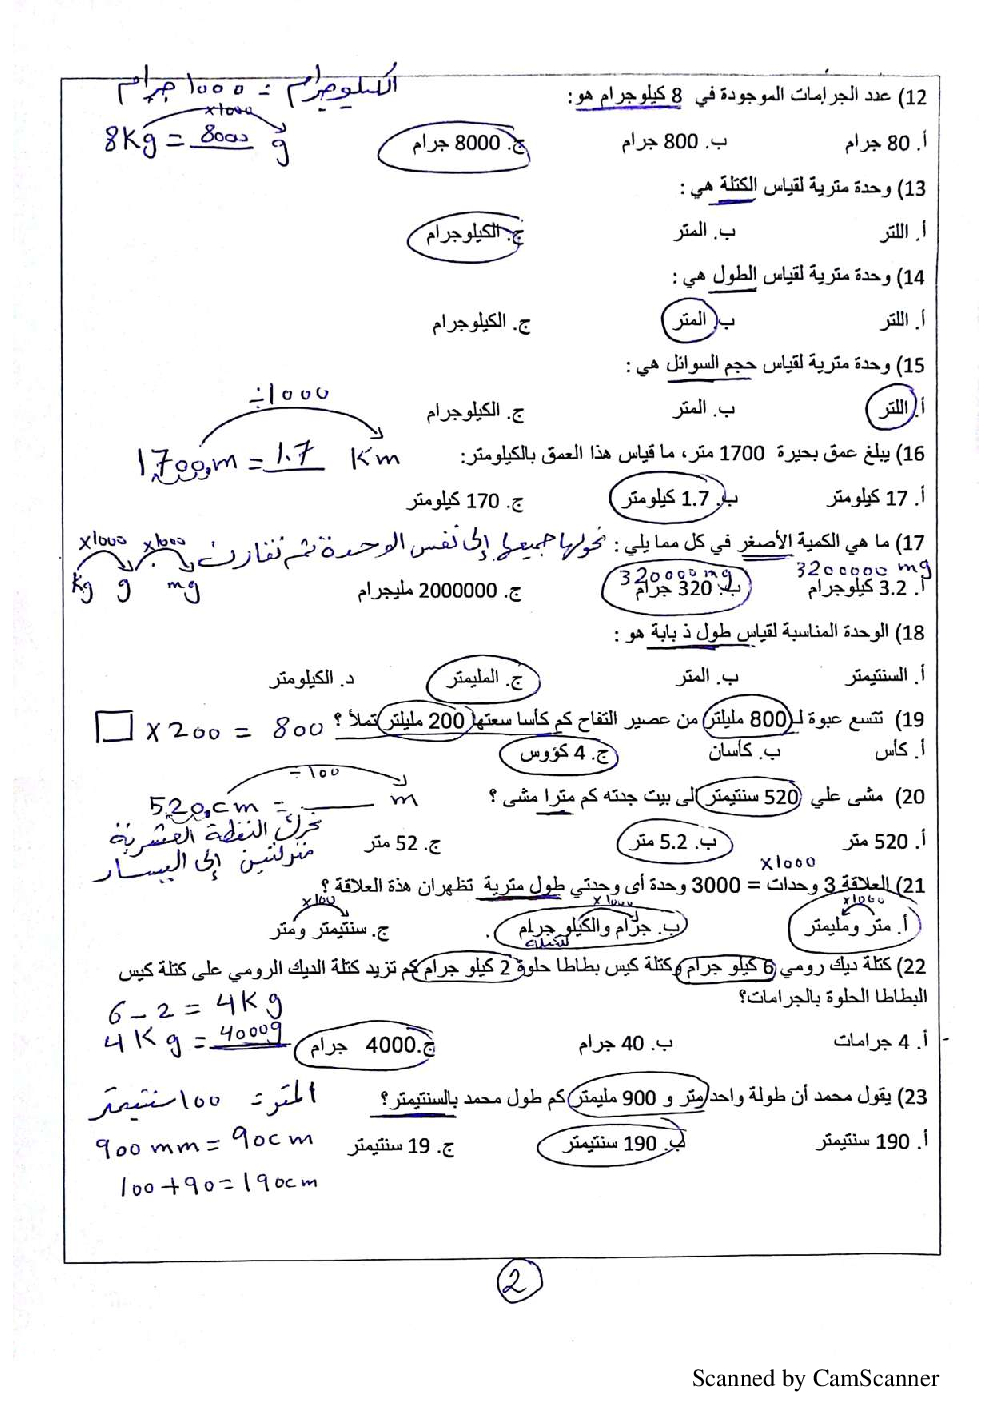 الكيلوجرام = ١٠٠٠ جرام
12) عدد الجرامات الموجودة في 8 كيلوجرام هو:
x1000
8Kg = 8000 g
أ. 80 جرام ب. 800 جرام ج. 8000 جرام
13) وحدة مترية لقياس الكتلة هي :
أ. اللتر ب. المتر ج. الكيلوجرام
14) وحدة مترية لقياس الطول هي :
أ. اللتر ب. المتر ج. الكيلوجرام
15) وحدة مترية لقياس حجم السوائل هي :
أ. اللتر ب. المتر ج. الكيلوجرام
÷1000
16) يبلغ عمق بحيرة 1700 متر، ما قياس هذا العمق بالكيلومتر:
1700,m = 1.7 Km
أ. 17 كيلومتر ب. 1.7 كيلومتر ج. 170 كيلومتر
17) ما هي الكمية الأصغر في كل مما يلي : نحولها جميعها إلى نفس الوحدة ثم نقارن
x1000 x1000
Kg g mg
3200000 mg 320000 mg
أ. 3.2 كيلوجرام ب. 320 جرام ج. 2000000 مليجرام
18) الوحدة المناسبة لقياس طول ذ بابة هو :
أ. السنتيمتر ب. المتر ج. المليمتر د. الكيلومتر
19) تتسع عبوة لـ 800 مليلتر من عصير التفاح كم كأسا سعتها 200 مليلتر تملأ ؟ □ x 200 = 800
أ. كأس ب. كأسان ج. 4 كؤوس
÷100
20) مشى علي 520 سنتيمتر إلى بيت جدته كم مترا مشى ؟
520,cm = ____ m
نحرك النقطة العشرية
منزلتين إلى اليسار
أ. 520 متر ب. 5.2 متر ج. 52 متر
x1000
21) العلاقة 3 وحدات = 3000 وحدة أى وحدتي طول مترية تظهران هذة العلاقة ؟
x1000 x1000 x100
أ. متر ومليمتر ب. جرام والكيلو جرام ج. سنتيمتر ومتر
للكتلة
22) كتلة ديك رومي 6 كيلو جرام وكتلة كيس بطاطا حلوة 2 كيلو جرام كم تزيد كتلة الديك الرومي على كتلة كيس
البطاطا الحلوة بالجرامات؟
6 - 2 = 4Kg
4Kg = 4000g
أ. 4 جرامات ب. 40 جرام ج. 4000 جرام
23) يقول محمد أن طولة واحد متر و 900 مليمتر كم طول محمد بالسنتيمتر؟
المتر = ١٠٠ سنتيمتر
أ. 190 سنتيمتر ب. 190 سنتيمتر ج. 19 سنتيمتر
900 mm = 90cm
100+90=190cm
2
Scanned by CamScanner